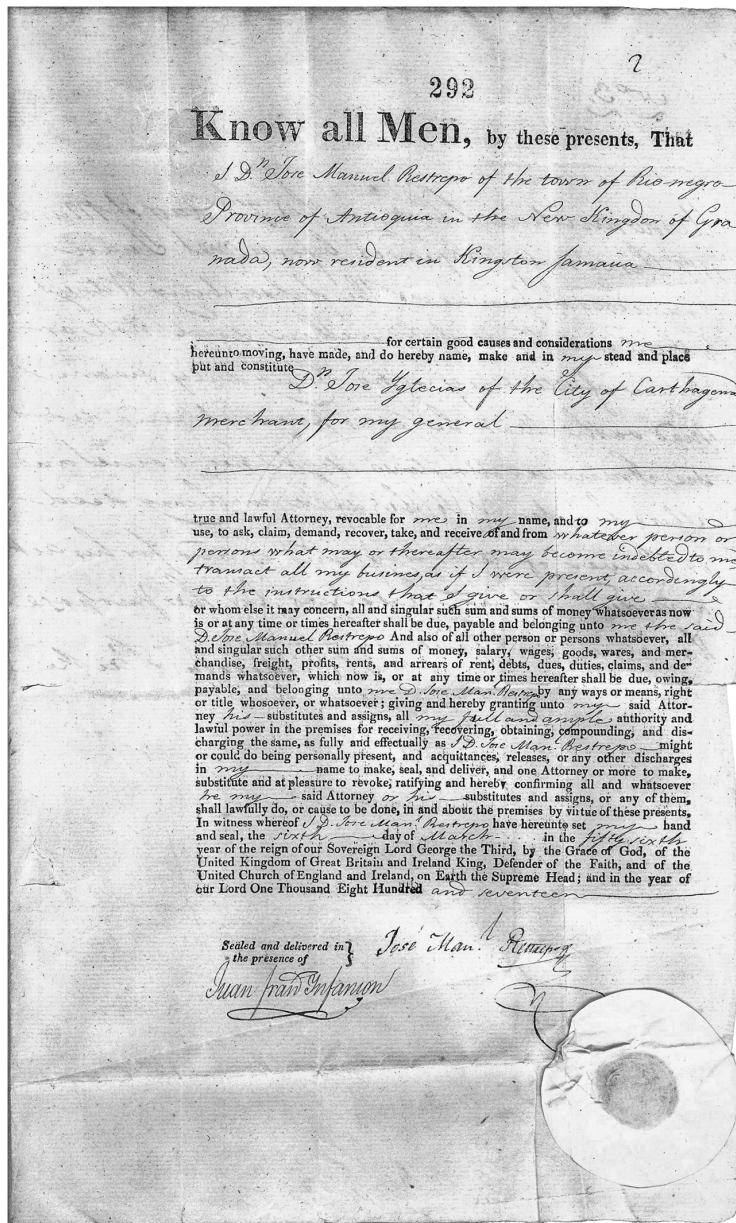 2
292
Know all Men, by these presents, That
I D.n Jose Manuel Restrepo of the town of Rio-negro
Province of Antioquia in the New Kingdom of Gra
nada, now resident in Kingston Jamaica
for certain good causes and considerations me
hereunto moving, have made, and do hereby name, make and in my stead and place
put and constitute
D.n Jose Yglecias of the City of Carthagena
merchant, for my general
true and lawful Attorney, revocable for me in my name, and to my
use, to ask, claim, demand, recover, take, and receive of and from whatever person or
persons what may or thereafter may become indebted to me
transact all my business as if I were present, accordengly
to the instructions that I give or shall give
or whom else it may concern, all and singular such sum and sums of money whatsoever as now
is or at any time or times hereafter shall be due, payable and belonging unto me the said
D. Jose Manuel Restrepo And also of all other person or persons whatsoever, all
and singular such other sum and sums of money, salary, wages, goods, wares, and mer-
chandise, freight, profits, rents, and arrears of rent, debts, dues, duties, claims, and de-
mands whatsoever, which now is, or at any time or times hereafter shall be due, owing,
payable, and belonging unto me D. Jose Man.l Restrepo by any ways or means, right
or title whosoever, or whatsoever; giving and hereby granting unto my said Attor-
ney his substitutes and assigns, all my full and ample authority and
lawful power in the premises for receiving, recovering, obtaining, compounding, and dis-
charging the same, as fully and effectually as I D. Jose Man.l Restrepo might
or could do being personally present, and acquittances, releases, or any other discharges
in my name to make, seal, and deliver, and one Attorney or more to make,
substitute and at pleasure to revoke, ratifying and hereby confirming all and whatsoever
he my said Attorney or his substitutes and assigns, or any of them,
shall lawfully do, or cause to be done, in and about the premises by virtue of these presents.
In witness whereof I D. Jose Man.l Restrepo have hereunto set my hand
and seal, the sixth day of March in the fifty sixth
year of the reign of our Sovereign Lord George the Third, by the Grace of God, of the
United Kingdom of Great Britain and Ireland King, Defender of the Faith, and of the
United Church of England and Ireland, on Earth the Supreme Head; and in the year of
our Lord One Thousand Eight Hundred and seventeen
Sealed and delivered in
the presence of
José Man.l Restrepo
Juan Fran.co Infanson